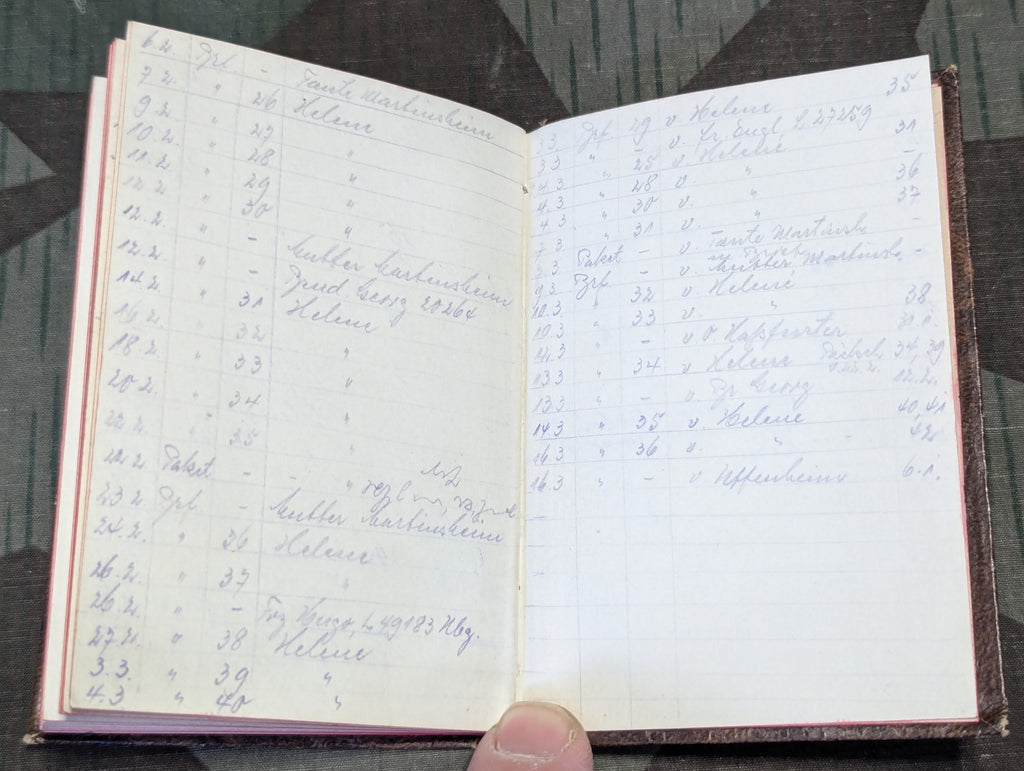 6.2. Brf. - Tante Martinsheim
7.2. " 26 Helene
9.2 " 27 "
10.2. " 28 "
11.2. " 29 "
12.2. " 30 "
12.2. " - Mutter Martinsheim
12.2. " - Georg 20264
14.2. " 31 Helene
16.2. 32 "
18.2. " 33 "
20.2. " 34 "
22.2. " 35 "
22.2. Paket - "
23.2. Brf. - Mutter Martinsheim
24.2. " 36 Helene
26.2. " 37 "
26.2. " - Hugo, L 49183 Hbg.
27.2. " 38 Helene
3.3. " 39 "
4.3 " 40 "
3.3 Brf. 29 v Helene 35
3.3 " - v. Fr. Engl. L 27259
4.3 " 25 v. Helene 31
4.3 " 28 v. " -
4.3 " 30 v. " 36
7.3 " 31 v. " 37
Paket - v. Tante Martinsh.
9.3. Brf. - v. Mutter, Martinsh. -
10.3. " 32 v. Helene
10.3 " 33 v. " 38
" - v
13.3 " 34 v Helene 34, 39
13.3 " - v. Georg 12.2.
14.3 " 35 v. Helene 40, 41
16.3 " 36 v. " 42
16.3 " - v Uffenheim 6.1.